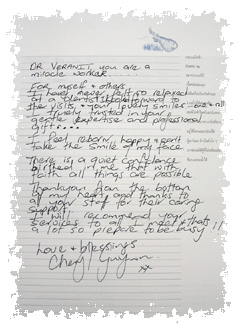 DR VERANIT, you are a
miracle worker.....
For myself & others
I have never felt so relaxed
at a dentist & look forward to
the visits & your lovely smiles
entirely trusted in your
gentle expertise and professional
gifts....
I feel reborn, happy & can't
take the smile off my face
There is a quiet confidence
in me that with
faith all things are possible
Thankyou from the bottom
of my heart and thanks to
all your staff for their caring
support.
I will recommend your
services to all I meet & that's
a lot so prepare to be busy !!
Love & blessings
Cheryl
xx